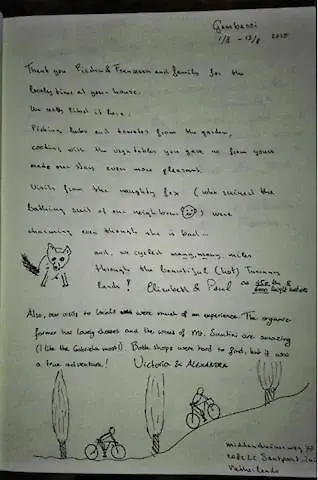 Gambassi
1/8 - 13/8 2015
Thank you Pietro & Francesca and family for the
lovely time at your house.
We really liked it here.
Picking herbs and tomatoes from the garden,
cooking with the vegetables you gave us from yours
made our stay even more pleasant.
Visits from the naughty fox (who ruined the
bathing suit of our neighbour) were
charming even though she is bad...
and, we cycled many, many miles
through the beautiful (hot) Tuscany
lands! Elizabeth & Paul
Also, our visits to locals were much of an experience. The organic
farmer has lovely cheeses and the wines of Mr. Santini are amazing
(I like the Gabriela most!). Both shops were hard to find, but it was
a true adventure! VICTORIA & ALEXANDRA
Santpoort
Netherlands